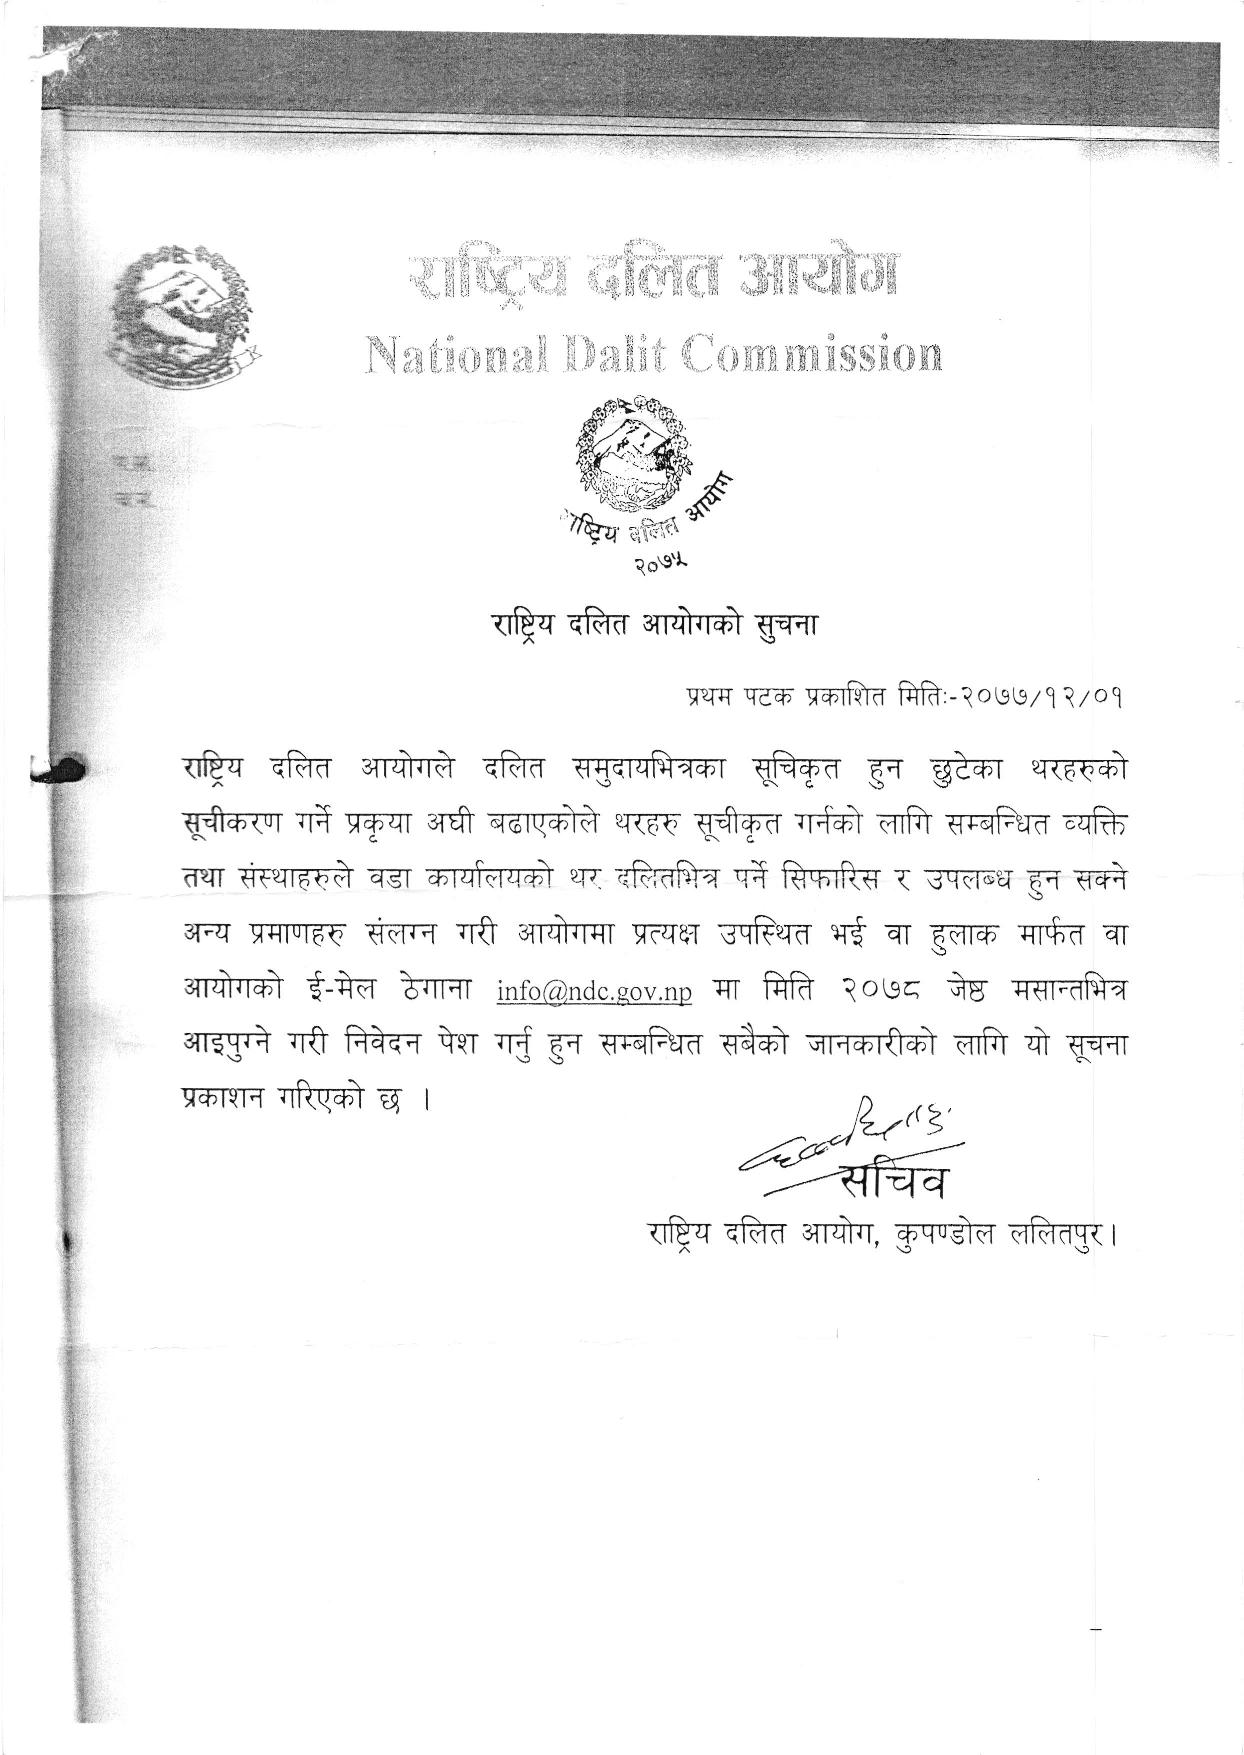 राष्ट्रिय दलित आयोग
National Dalit Commission
राष्ट्रिय दलित आयोग
२०७५
राष्ट्रिय दलित आयोगको सुचना
प्रथम पटक प्रकाशित मितिः-२०७७/१२/०१
राष्ट्रिय दलित आयोगले दलित समुदायभित्रका सूचिकृत हुन छुटेका थरहरुको
सूचीकरण गर्ने प्रकृया अघी बढाएकोले थरहरु सूचीकृत गर्नको लागि सम्बन्धित व्यक्ति
तथा संस्थाहरुले वडा कार्यालयको थर दलितभित्र पर्ने सिफारिस र उपलब्ध हुन सक्ने
अन्य प्रमाणहरु संलग्न गरी आयोगमा प्रत्यक्ष उपस्थित भई वा हुलाक मार्फत वा
आयोगको ई-मेल ठेगाना info@ndc.gov.np मा मिति २०७८ जेष्ठ मसान्तभित्र
आइपुग्ने गरी निवेदन पेश गर्नु हुन सम्बन्धित सबैको जानकारीको लागि यो सूचना
प्रकाशन गरिएको छ ।
सचिव
राष्ट्रिय दलित आयोग, कुपण्डोल ललितपुर।